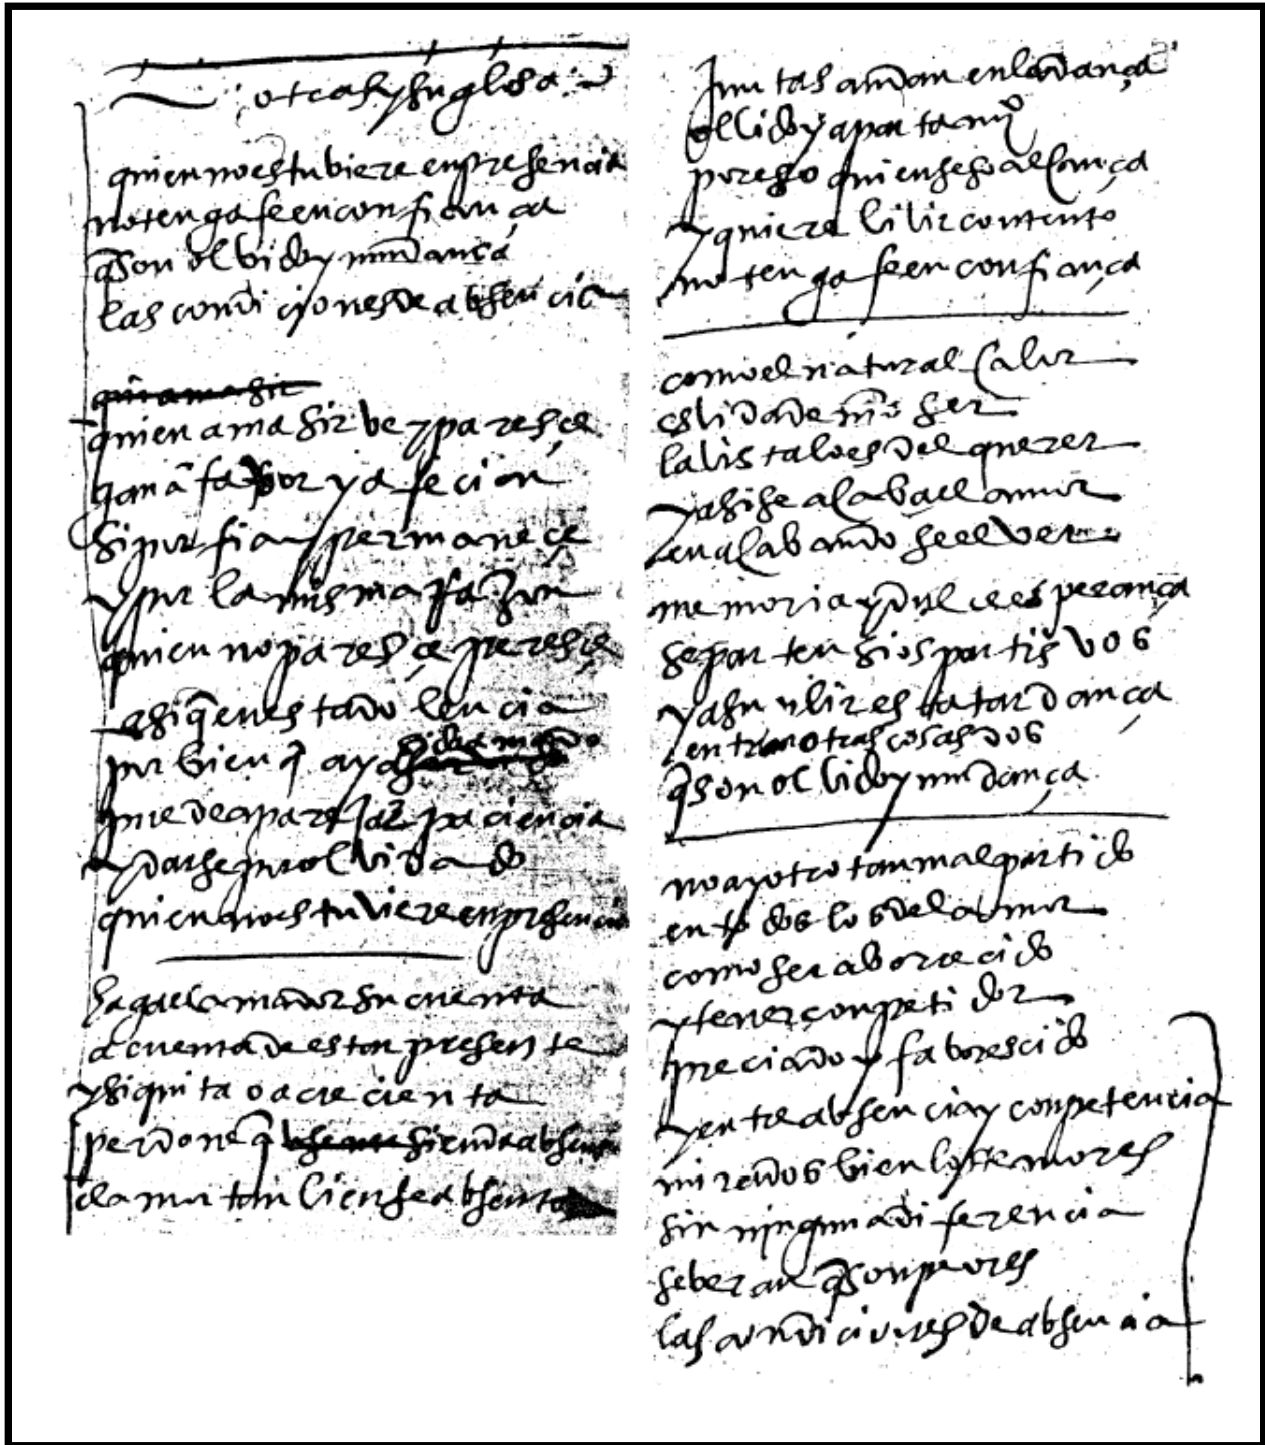 otras y su glosa
quien no estubiere en presencia
no tenga fe en confiança
q̃ son olbido y mudança
las condiciones de absencia
quien ama sir
quien ama sirbe y paresçe
gana fabor y afecion
si porfia y permaneçe
y por la misma razon
quien no paresçe peresçe
asi q̃ en estado
por bien q̃ aya sido amado
puede aparejar paciencia
y darse por olvidado
quien no estuviere en presencia
haga el amador su cuenta
a cuenta de estar presente
y si quita o acrecienta
perdone q̃ absente siendo absente
el amor tanbien se absenta
Juntas andan en la dança
ollido y apartamẽto
por eso quien seso alcança
y quiere bibir contento
no tenga fe en confiança
como el natural calor
es bida de nr̃o ser
la vista lo es del querer
y asi se acaba el amor
en acabando se el ver
memoria y dulce esperança
se parten si os partis vos
y a su bibir es la tardança
entran otras cosas dos
q̃ son olbido y mudança
no ay otro tan mal partido
en todos los del amor
como ser aborrecido
y tener conpetidor
preciado y faborescido
y entre absencia y conpetencia
mirados bien los temores
sin ninguna diferencia
se beran q̃ son peores
las condiciones de absencia